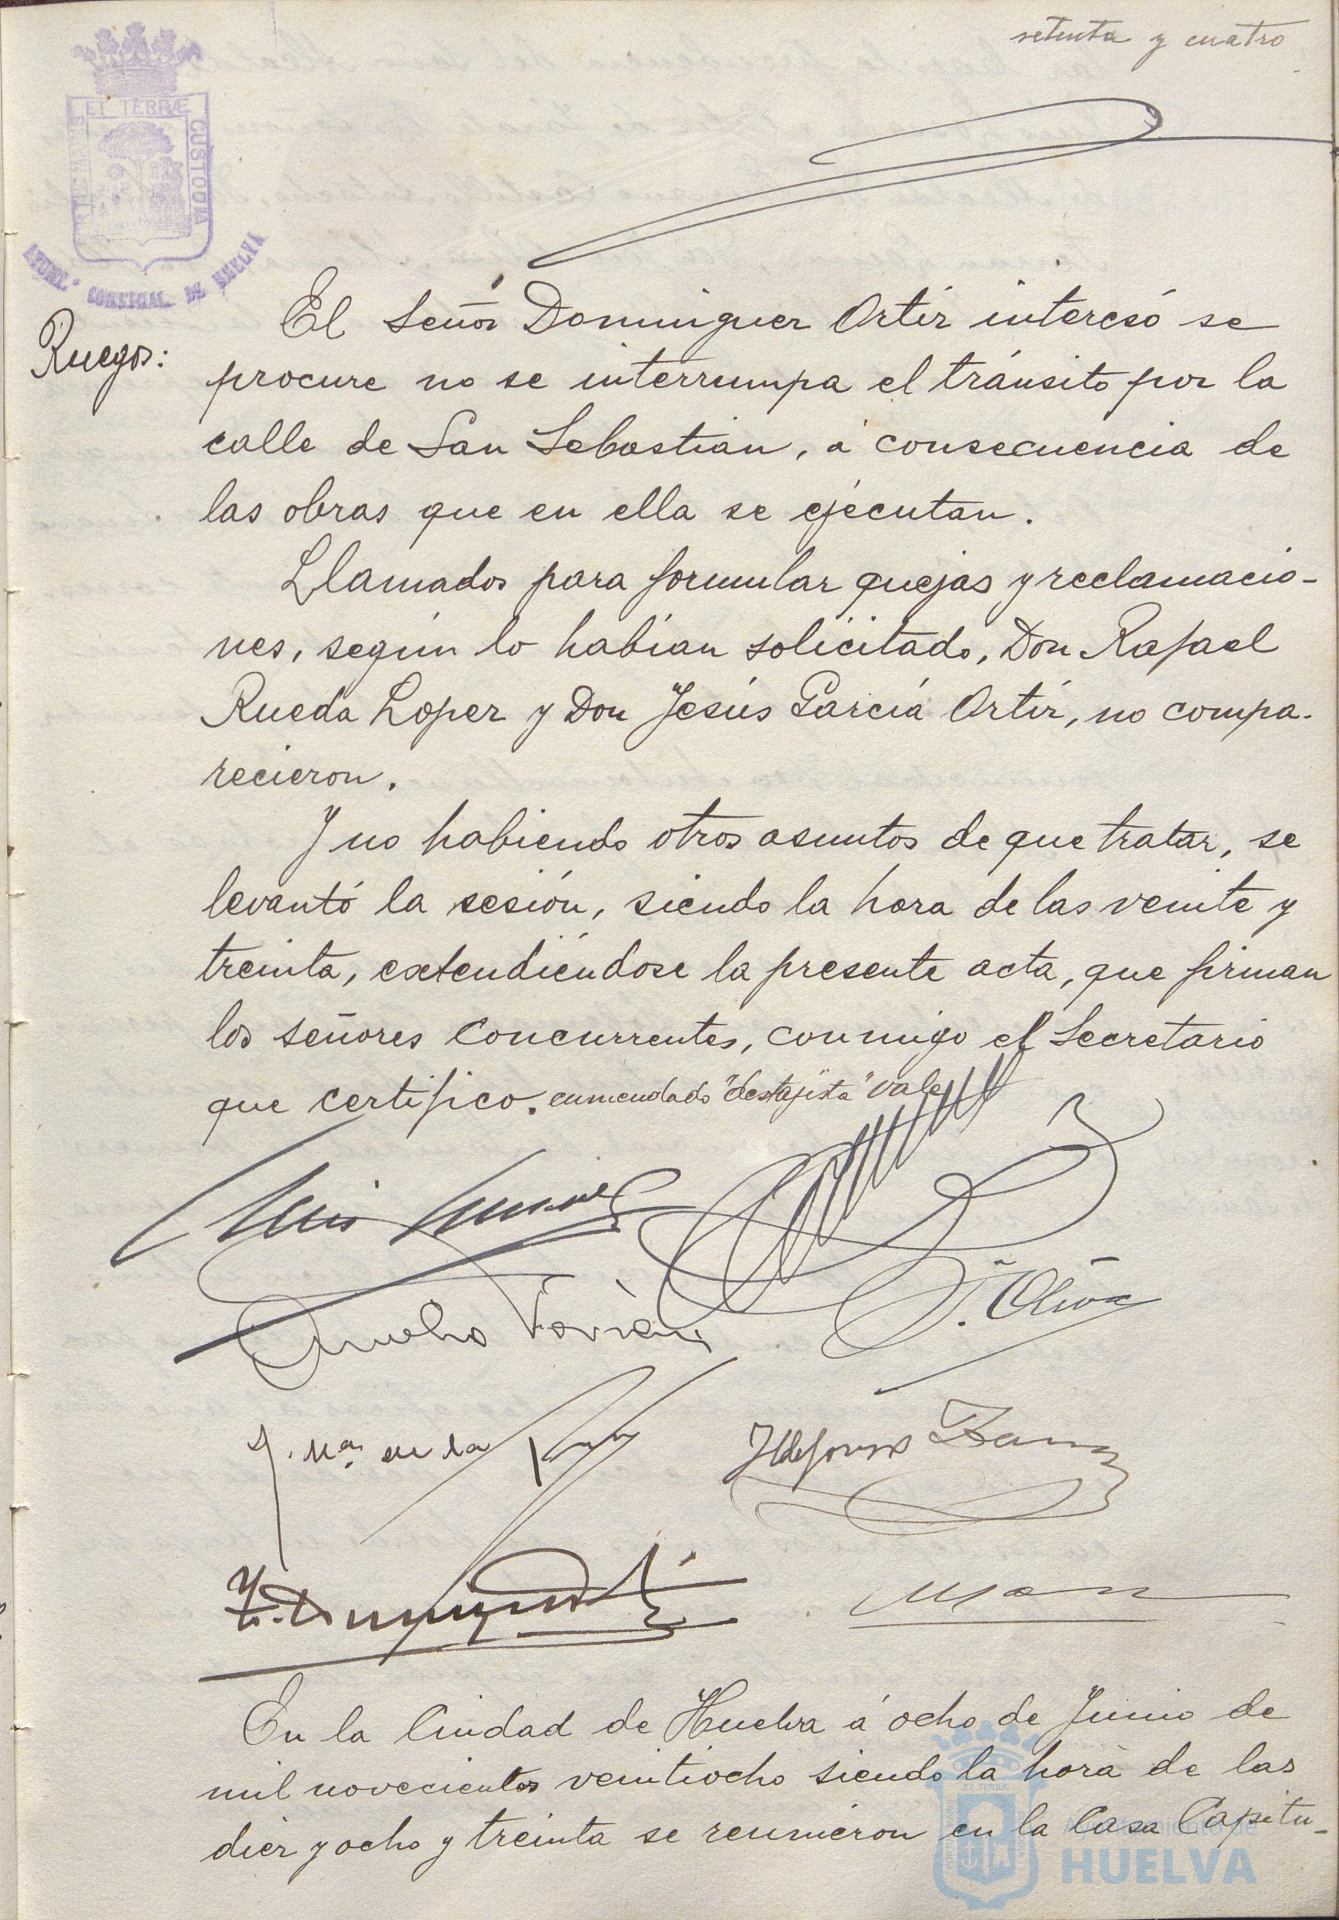 setenta y cuatro
ET TERRÆ
CUSTODIA
AYUNT.º CONSTITUCIONAL DE HUELVA
Ruegos:
El Señor Dominguez Ortiz interesó se
procure no se interrumpa el tránsito por la
calle de San Sebastián, á consecuencia de
las obras que en ella se ejecutan.
Llamados para formular quejas y reclamacio-
nes, según lo habían solicitado, Don Rafael
Rueda Lopez y Don Jesús García Ortiz, no compa-
recieron.
Y no habiendo otros asuntos de que tratar, se
levantó la sesión, siendo la hora de las veinte y
treinta, extendiéndose la presente acta, que firman
los señores Concurrentes, conmigo el Secretario
que certifico. enmendado "destajista" vale
J. Oliva
J. Mª de la
Ildefonso
En la Ciudad de Huelva á ocho de Junio de
mil novecientos veintiocho siendo la hora de las
diez y ocho y treinta se reunieron en la Casa Capitu-
Ayuntamiento de
HUELVA